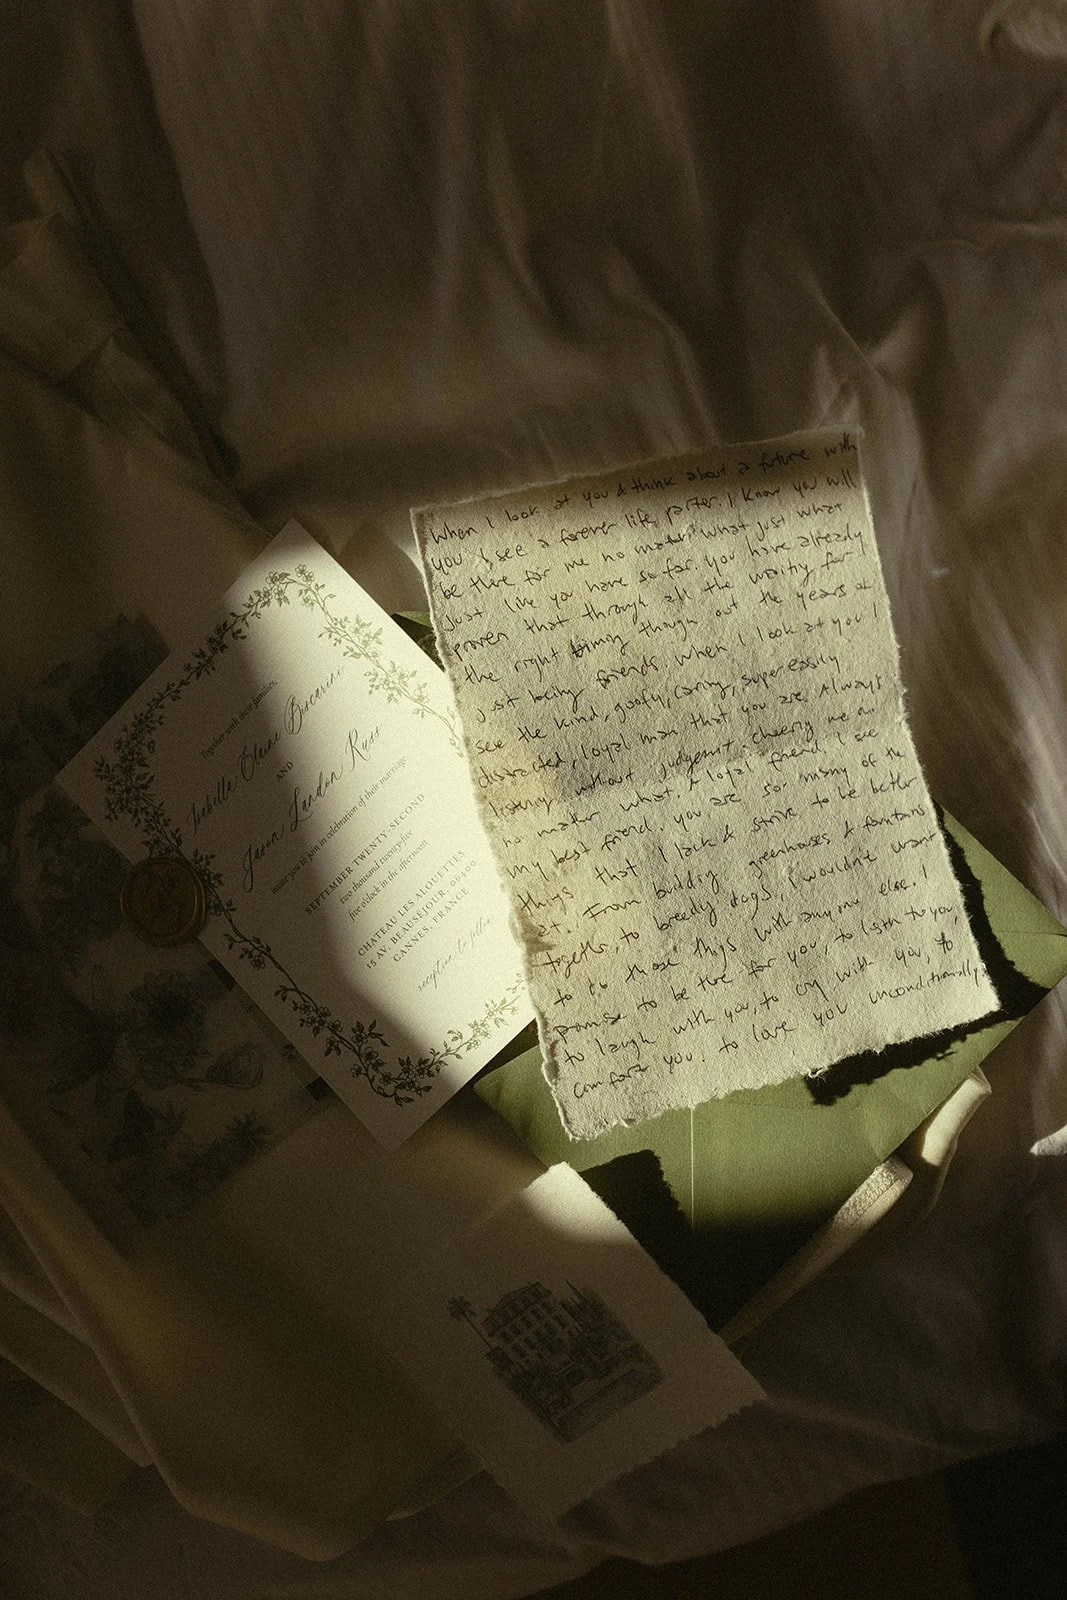 Together with their families,
Isabella Elaine Biscarini
AND
Jason Landon Russ
invite you to join in celebration of their marriage
SEPTEMBER TWENTY-SECOND
two thousand twenty-five
five o'clock in the afternoon
CHATEAU LES ALOUETTES
15 AV. BEAUSEJOUR, 06400
CANNES, FRANCE
reception to follow
When I look at you & think about a future with
you I see a forever life parter. I know you will
be there for me no matter what just what
Just like you have so far. You have already
proven that through all the waiting for
the right timing though out the years of
just being friends. When I look at you I
see the kind, goofy, caring, super easily
distracted, loyal man that you are. Always
listening without judgement. cheering me on
no matter what. A loyal friend. I see
my best friend. you are so many of the
things that I lack & strive to be better
at. From building greenhouses & fountains
together, to breedy dogs, I wouldn't want
to do those things with anyone else. I
promise to be there for you, to listen to you,
to laugh with you, to cry with you, to
comfort you. to love you unconditionally